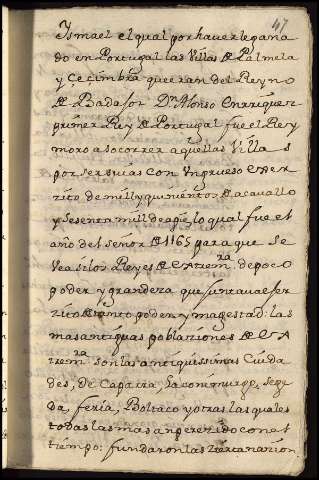 47
Ismael el qual por haverle gana
do en Portugal las Villas de Palmela
y Çecimbra que eran del Reyno
de Badajoz Dn Alonso Enrriquez
primer Rey de Portugal fue el Rey
moro a socorrer aquellas Villas
por ser suias con Ungrueso exer
zito de mill y quinientos de acavallo
y sesenta mill de a pie, lo qual fue el
año del señor de 1165 para que se
vea si los Reyes de extremra de poco
poder y grandeza que juntava exer
zito de tanto poder y magestad: las
mas antiguas poblaziones de ex
tremra son las antiquissimas Ciuda
des, de Caparra,
da, feria, Boltaco y otras las quales
todas las mas an perezido con el
tiempo: fundaron las